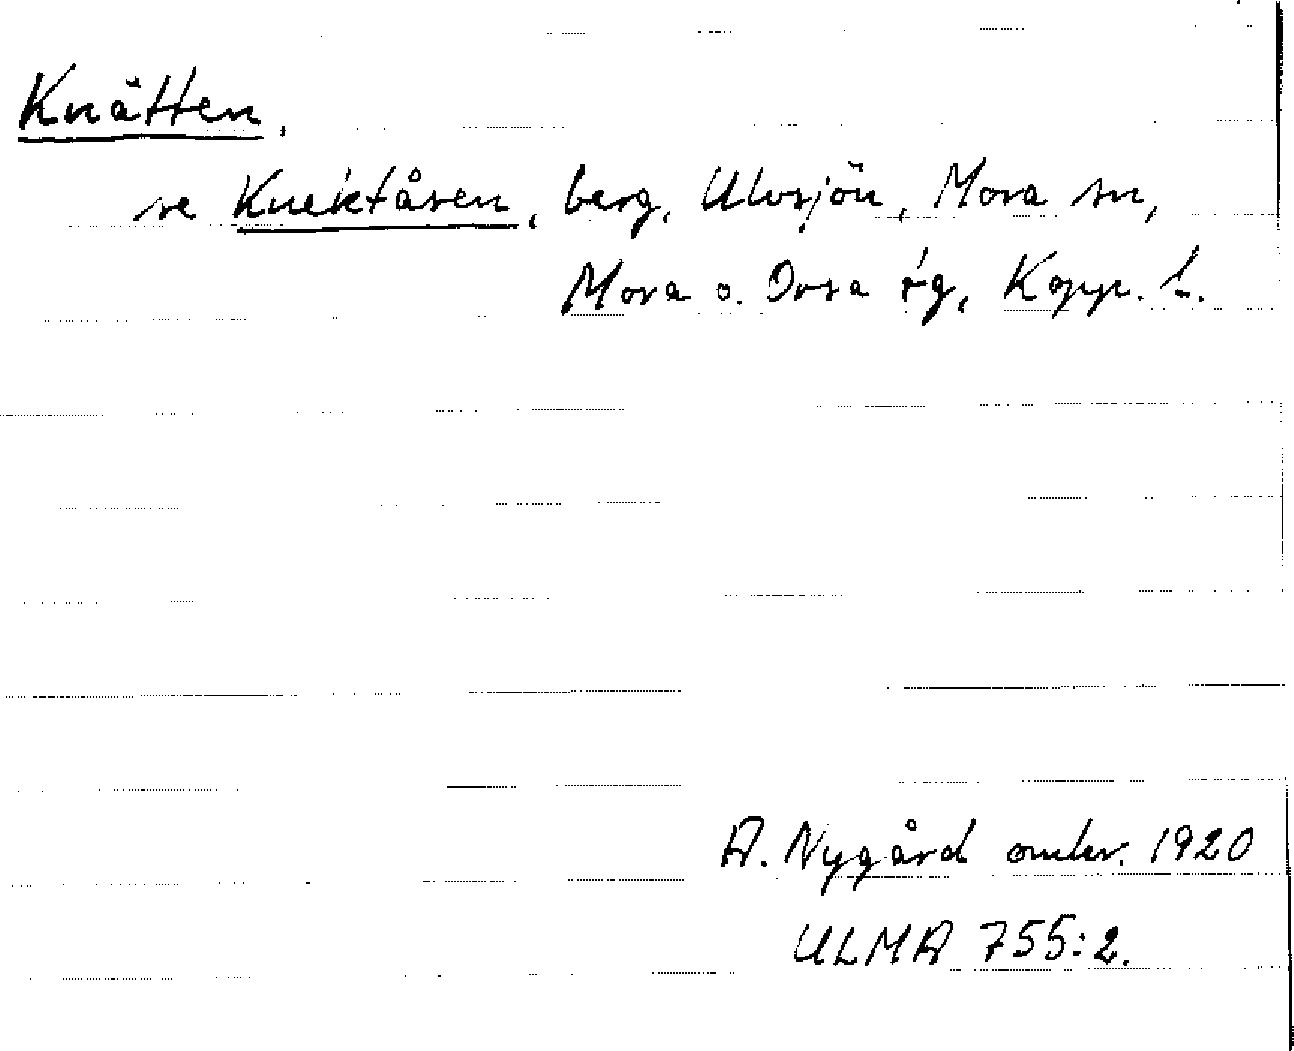 Knätten,
se Knektåsen, berg, Ulvsjön, Mora sn,
Mora o. Orsa tg, Kopp. l.
A. Nygård omkr. 1920
ULMA 755:2.